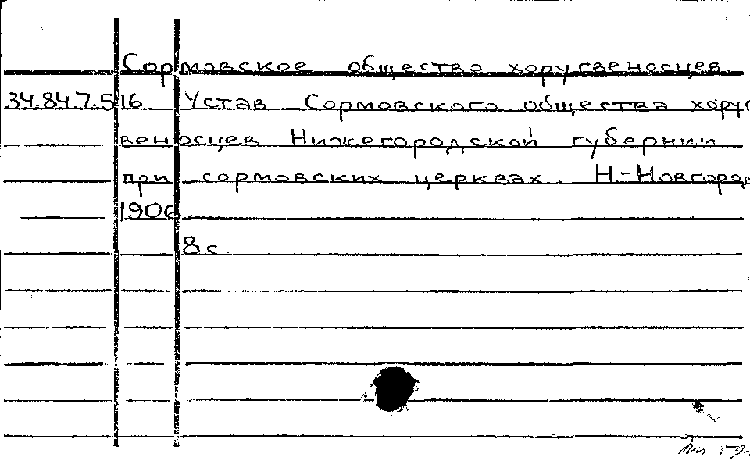 Сормовское общество хоругвеносцев.
34.84.7.516 Устав Сормовского общества хору
веносцев Нижегородской губернии
при сормовских церквах. Н.-Новгород
1906
8 с